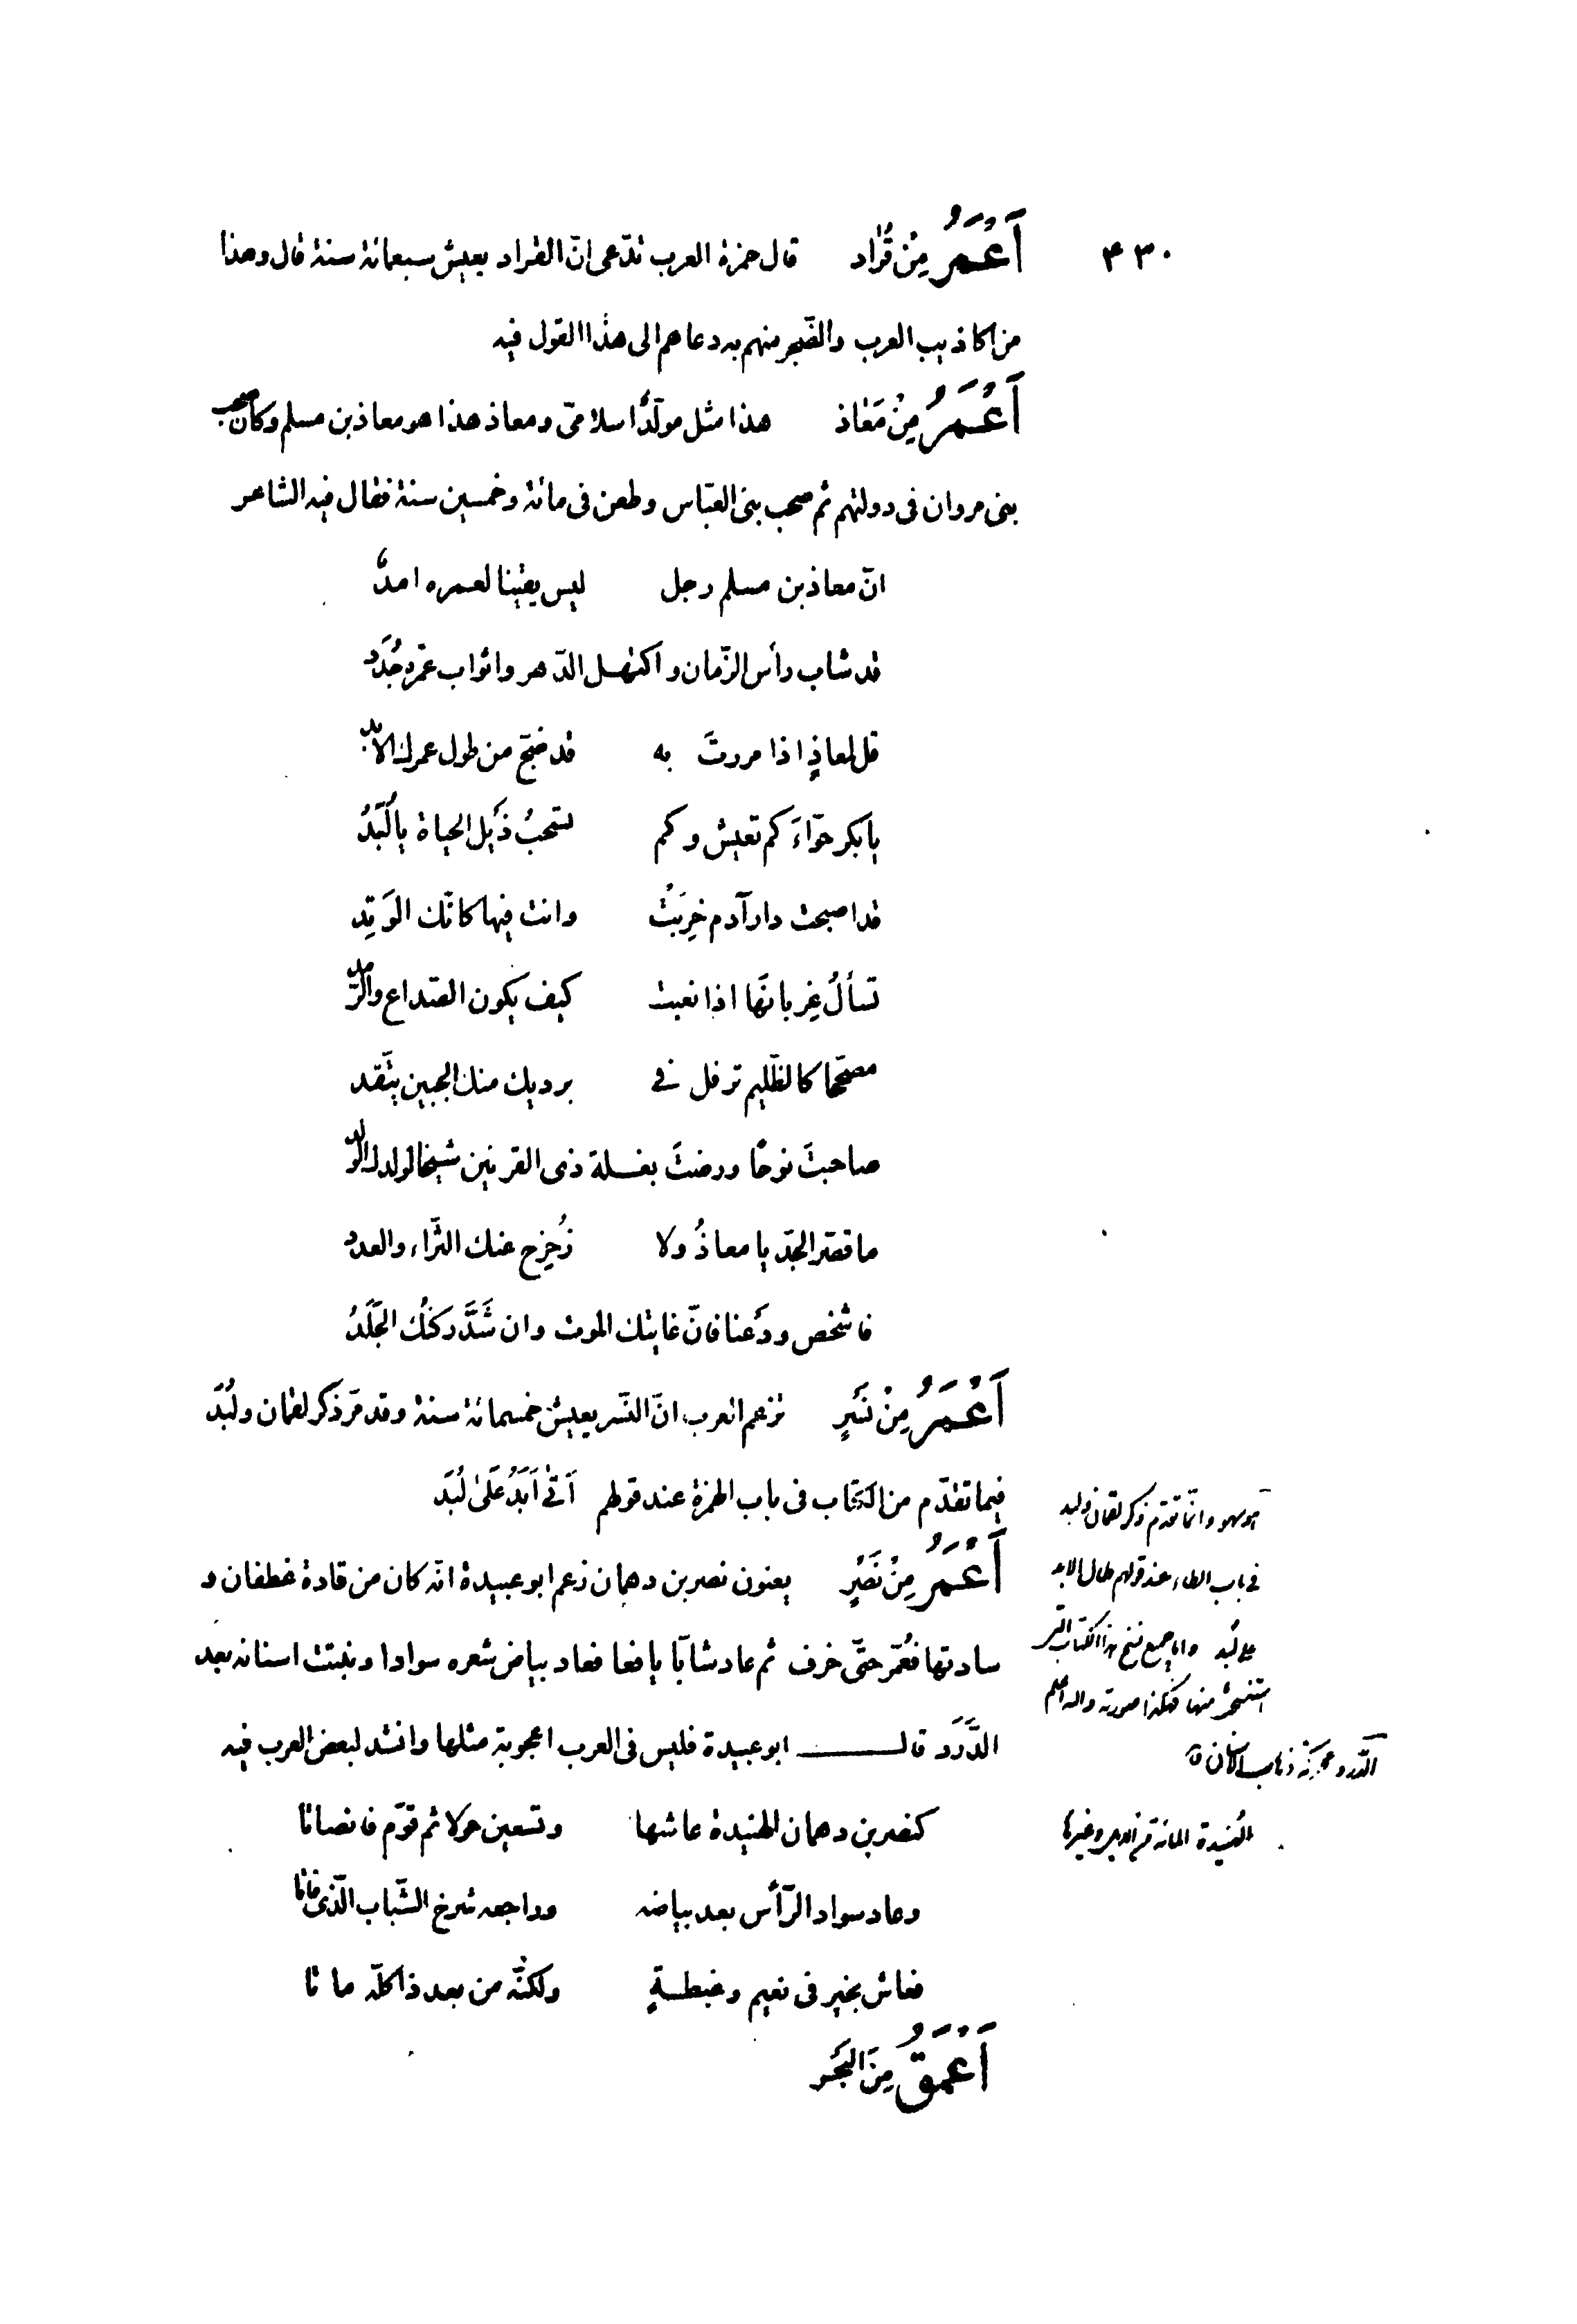 ٤٣٠
أَعْمَرُ مِنْ قُرَاد قال حمزة العرب تدّعى انّ القراد يعيش سبعمائة سنة قال وهذا
من اكاذيب العرب والضّجر منهم به دعاهم الى هذا القول فيه
أَعْمَرُ مِنْ مَعَاذ هذا مثل مولّد اسلامىّ ومعاذ هذا هو معاذ بن مسلم وكان صحب
بنى مروان فى دولتهم ثم صحب بنى العبّاس وطعن فى مائة وخمسين سنة فقال فيه الشاعر
انّ معاذ بن مسلم رجل ليس يقينا لعمره امدُ
قد شاب رأس الزّمان واكتهل الدّهر واثواب عمّره جُدَد
قل لمعاذٍ اذا مررتَ به قد ضجّ من طول عمرك الابد
يا بكر حوّاءَ كم تعيش وكم تسحبُ ذَيل الحياة يا لُبَدُ
قد اصبحت دار آدم خَرِبَتْ وانت فيها كانّك الوَتِد
تسألُ غِربانَها اذا نعبت كيف يكون الصّداع والرّمد
مصحّحا كالظّليم ترفل فى برديك منك الجبين يتّقد
صاحبتَ نوحًا ورضتَ بغلة ذى القرنين شيخا لولدك الولد
ما قصّر الجدّ يا معاذُ ولا زُحزح عنك الثّراء والعدد
فاشخص ودَعنا فانّ غايتك الموت وان شَدَّ ركنُك الجَلَدُ
أَعْمَرُ مِنْ نَسْرٍ تزعم العرب انّ النّسر يعيش خمسمائة سنة وقد مرّ ذكر لقمان ولُبَدَ
فيما تقدّم من الكتاب فى باب الهمزة عند قولهم أَتَى أَبَدٌ عَلَى لُبَدَ
أَعْمَرُ مِنْ نَصْرٍ يعنون نصر بن دهمان زعم ابو عبيدة انّه كان من قادة غطفان و
سادتها فعُمّر حتّى خرف ثم عاد شابّا يافعا فعاد بياض شعره سوادا ونبتت اسنانه بعد
الدَّرَد قال ابو عبيدة فليس فى العرب اعجوبة مثلها وانشد لبعض العرب فيه
كنصر بن دهمان الهنيدة عاشها وتسعين حولا ثم قوّم فانصاتا
وعاد سواد الرّأس بعد بياضه وراجعه شرخ الشّباب الّذى فاتا
فعاش بخير فى نعيم وغبطةٍ ولكنّه من بعد ذا كلّه ماتا
أَعْمَقُ مِنَ البَحْر
هو سهو وانّما تقدم ذكر لقمان ولبد
فى باب الطاء عند قولهم طال الابد
على لُبد جميع نسخ هذا الكتاب الّتى
استنسخت منها هكذا صورته والله اعلم
الدّرد محرّكة ذهاب الاسنان
الهُنيدة المائة من الابل وغيرها